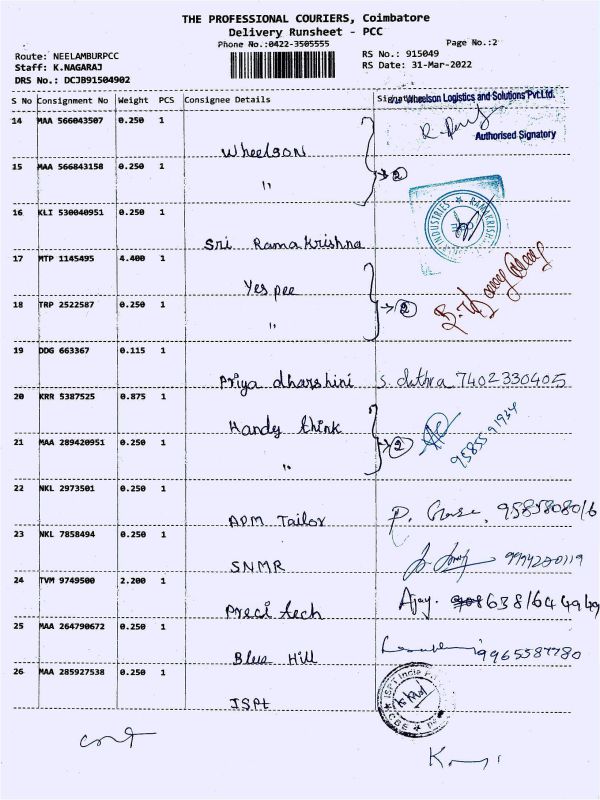 THE PROFESSIONAL COURIERS, Coimbatore
Delivery Runsheet - PCC
Phone No.:0422-3505555
Page No.:2
Route: NEELAMBURPCC
RS No.: 915049
Staff: K.NAGARAJ
RS Date: 31-Mar-2022
DRS No.: DCJB91504902
S No Consignment No Weight PCS Consignee Details
Wheelson Logistics and Solutions Pvt.Ltd.
Authorised Signatory
14 MAA 566043507 0.250 1 Wheelson
15 MAA 566843158 0.250 1 "
2
16 KLI 530040951 0.250 1 Sri Ramakrishna
INDUSTRIES
17 MTP 1145495 4.400 1 Yes pee
18 TRP 2522587 0.250 1 "
2
19 DDG 663367 0.115 1 Priya dharshini 7402330405
20 KRR 5387525 0.875 1 Handy think
21 MAA 289420951 0.250 1 "
2
9585591934
22 NKL 2973501 0.250 1 APM Tailor
23 NKL 7858494 0.250 1 SNMR
24 TVM 9749500 2.200 1 Preci tech Ajay.
25 MAA 264790672 0.250 1 Blue Hill 9965587780
26 MAA 285927538 0.250 1 JSPt